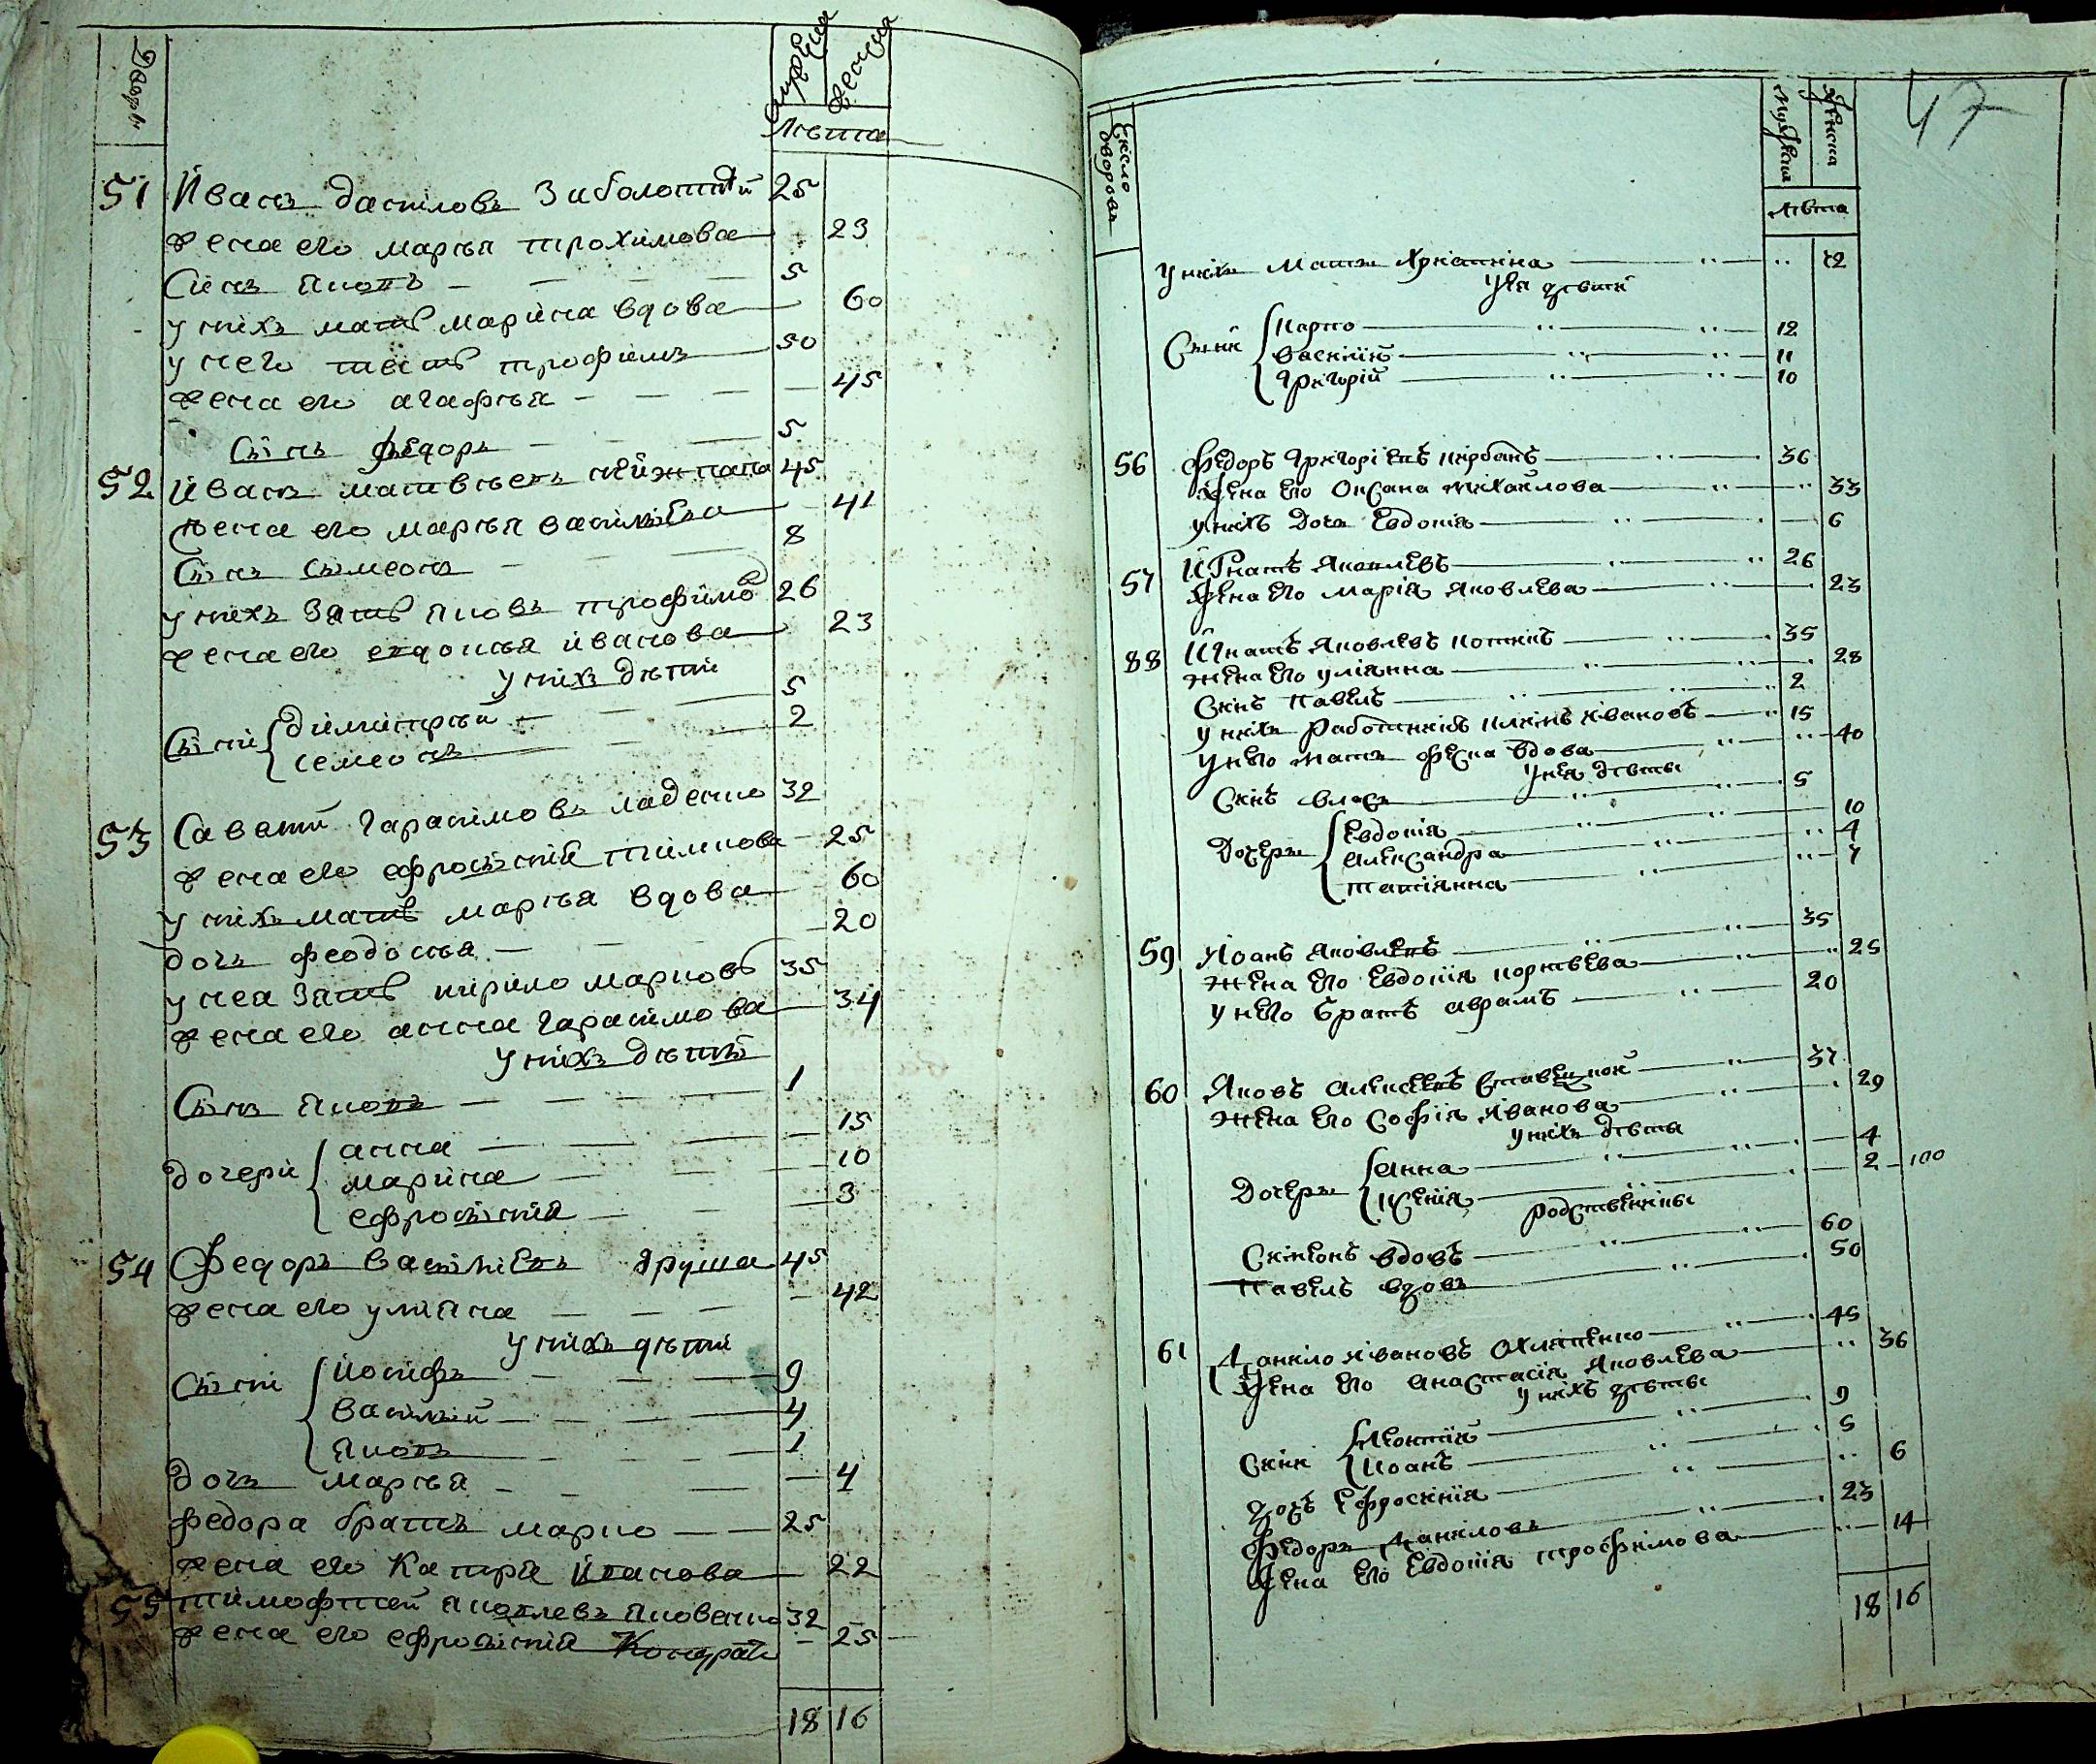 Дворъ
мужеска женска
лѣта
51 Иванъ даниловъ Заболотній 25
жена его марѣя трохимова 23
Синъ яковъ 5
у нихъ мать марина вдова 60
у него тесть трофимъ 50
жена его агафѣя 45
Синъ федоръ 5
52 Иванъ матвѣевъ 45
жена его марѣя василиева 41
Синъ Симеонъ 8
у нихъ Зять яковъ трофимовъ 26
жена его евдокѣя иванова 23
у нихъ дѣти
Сини димитрѣй 5
семеонъ 2
53 Саватій гарасимовъ ладенко 32
жена его ефросинія 25
у нихъ мать марѣя вдова 60
дочь феодосѣя 20
у нея Зять кирило марковъ 35
жена его анна гарасимова 34
у нихъ дѣти
Синъ яковъ 1
дочери анна 15
марина 10
ефросинія 3
54 Федоръ василіевъ 45
жена его уліяна 42
у нихъ дѣти
Сини Иосифъ 9
василий 4
яковъ 1
дочь марѣя 4
федора братъ марко 25
жена его Катря иванова 22
55 тимофѣй яковлевъ яковенко 32
жена его ефросинія Кондрати 25
18 16
47
Число дворовъ
мужеска женска
лѣта
у нихъ мать Христина 72
у нея дѣти
Сыни Марко 12
василій 11
григорій 10
56 федоръ григоріевъ 36
жена его Оксана михайлова 33
у нихъ дочь Евдокія 6
57 Игнатъ Яковлевъ 26
жена его марія яковлева 23
88 Игнатъ яковлевъ 35
жена его уліянна 28
Синъ павелъ 2
у нихъ работникъ ивановъ 15
у него мать вдова 40
у нея дѣты
Синъ власъ 5
дочеры Евдокія 10
александра 4
татіянна 7
59 Иоанъ яковлевъ 35
жена его Евдокія корнѣева 25
у него братъ аврамъ 20
60 яковъ алексеевъ 37
жена его Софія иванова 29
у нихъ дѣты
дочеры анна 4
ксенія 2 100
родственники
Симеонъ вдовъ 60
павелъ вдовъ 50
61 данило ивановъ 45
жена его анастасія яковлева 36
у нихъ дѣты
Сини леонтій 9
Иоанъ 5
дочь ефросинія 6
федоръ даниловъ 23
жена его Евдокія трофимова 14
18 16